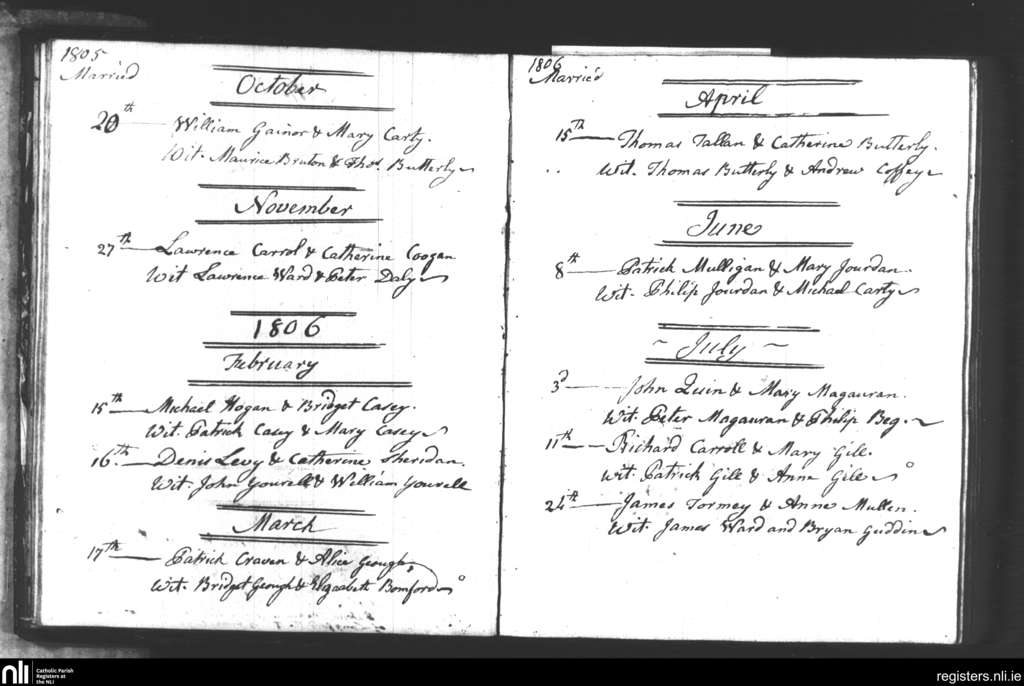 1805
Married
October
20th William Gainor & Mary Carty.
Wit. Maurice Bruton & Thos. Butterly
November
27th Lawrence Carrol & Catherine Coogan
Wit Lawrence Ward & Peter Daly
1806
February
15th Michael Hogan & Bridget Casey.
Wit. Patrick Casey & Mary Casey
16th Denis Levy & Catherine Sheridan.
Wit. John Yourell & William Yourell
March
17th Patrick Craven & Alice Geough
Wit. Bridget Geough & Elizabeth Bomford
1806
Married
April
15th Thomas Tallan & Catherine Butterly.
Wit. Thomas Butterly & Andrew Coffey
June
8th Patrick Mulligan & Mary Jourdan.
Wit. Philip Jourdan & Michael Carty
~ July ~
3d John Quin & Mary Magauran.
Wit. Peter Magauran & Philip Beg.
11th Richard Carroll & Mary Gill.
Wit. Patrick Gill & Anne Gill
24th James Tormey & Anne Mullen.
Wit James Ward and Bryan Guddin
nli
Catholic Parish
Registers at
the NLI
registers.nli.ie